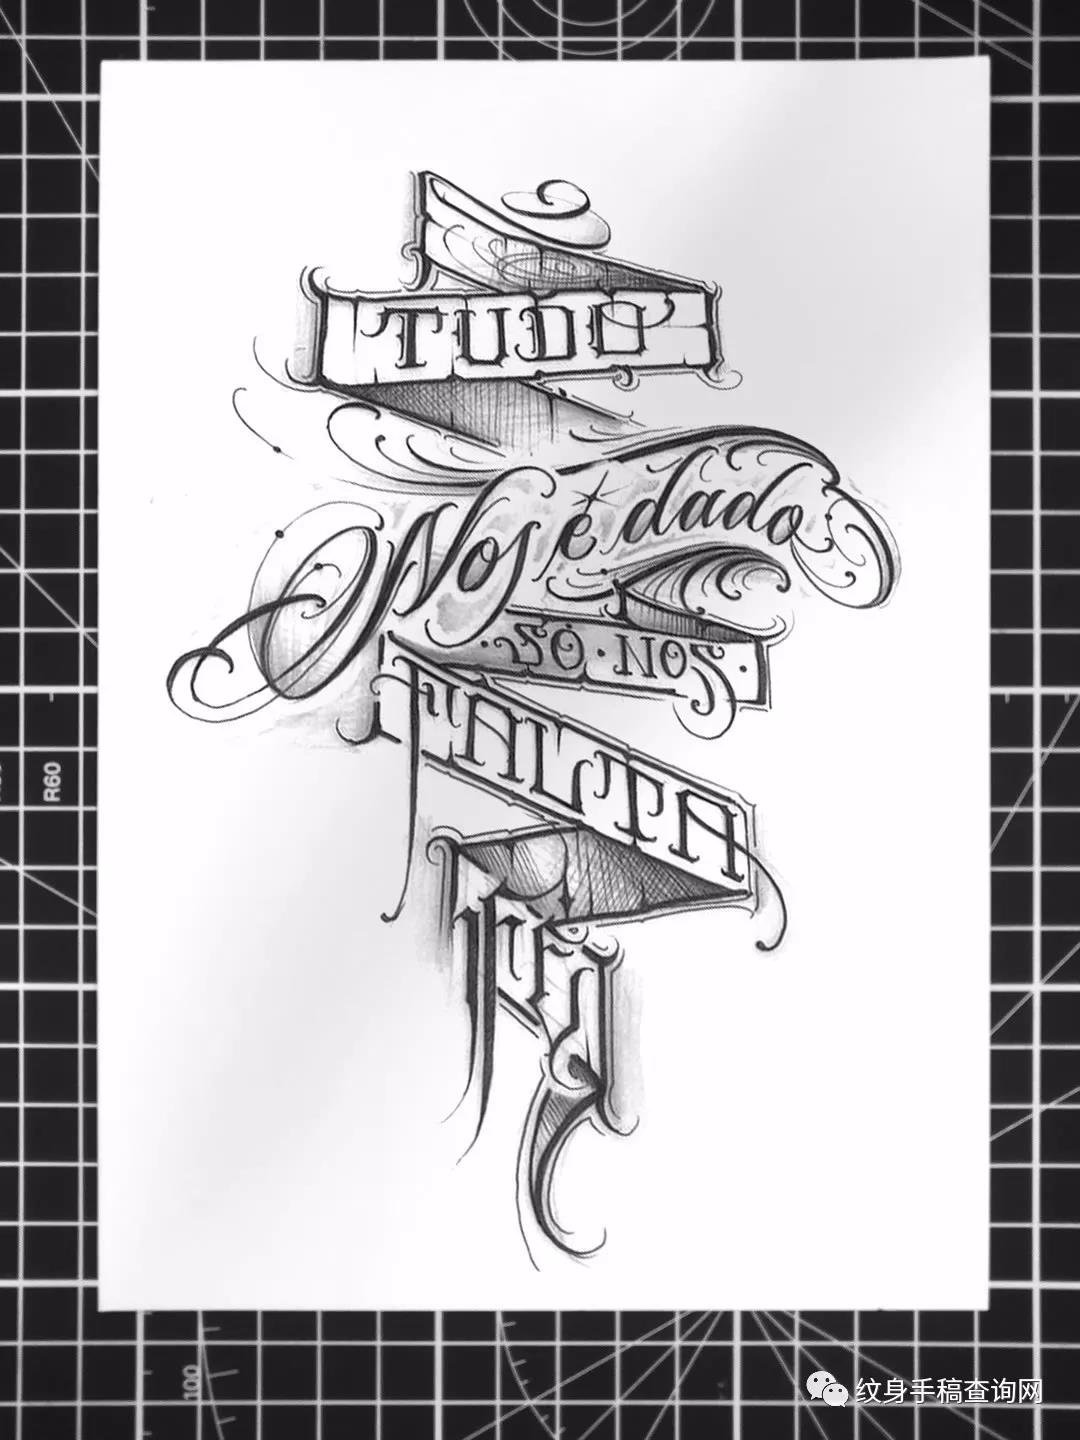 TUDO
Nos é dado
·SÓ·NOS·
FALTA
R60
100
纹身手稿查询网